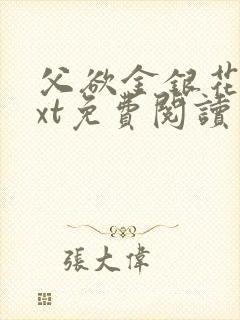 父欲金銀花
xt免費閱讀
張大偉